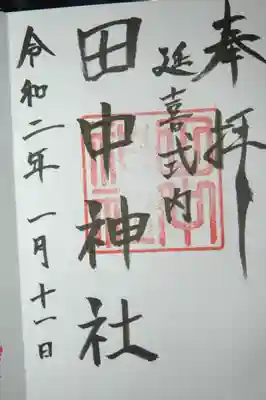 奉拝
延喜式内
田中神社
令和二年一月十一日